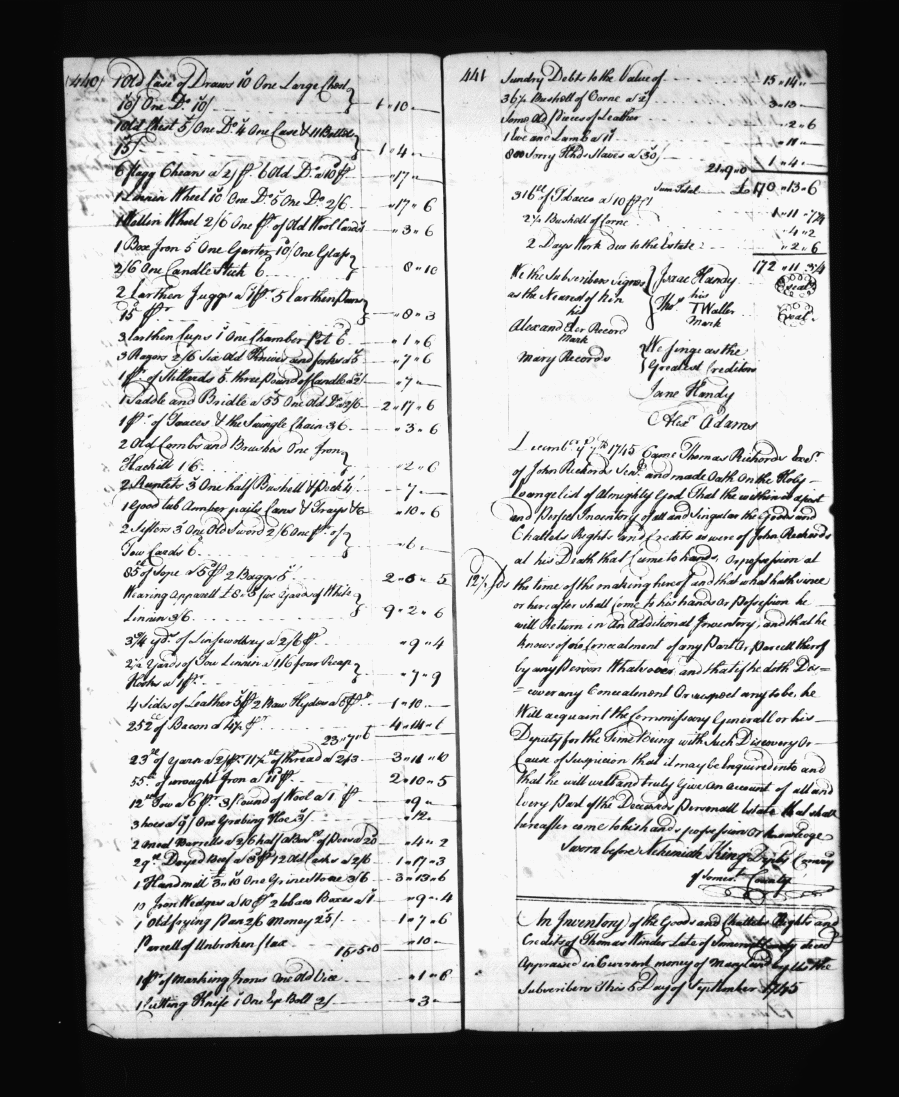 (440)
1 Old Case of Draws 10 One Large Chest
10/ One Do. 10/ 1 " 10 "
1 Old Chest 5/ One Do. 4 One Case & 11 Bottles
15/ 1 " 4 "
6 Flagg Chears a 2/ pr 6 Old Do. a 10 pr " 17 "
1 Linnin Wheel 10 One Do. 5 One Do. 2/6 " 17 " 6
1 Wollin Wheel 2/6 One pr of Old Wool Cards " 3 " 6
1 Box Iron 5 One Garter 10/ One Glass
2/6 One Candle Stick 6 8 " 10
2 Earthen Juggs a 5 Earthen Pans
15 pr " 8 " 3
3 Earthen Cups 1 One Chamber Pot 6 " 1 " 6
3 Razors 2/6 Six Old Knives and forks a 5 " 7 " 6
1 pr. of Stillards 5. three pound of Candle a 2/ " 7 "
1 Saddle and Bridle a 55 One Old Do. a 2/6 2 " 17 " 6
1 pr. of Traces & the Swingle Chain 3 6 " 3 " 6
2 Old Combs and Brushes One Iron
Hackill 1 6 " 2 " 6
2 Runlets 3 One half Bushell & Peck 4 " 7 "
1 Good tub pails Cans & Trays " 10 " 6
2 Sifters 3 One Old Sword 2/6 One pr. of
Tow Cards 6 " 6 "
85 of Rope a 5 pr 2 Baggs 5 2 " 0 " 5
Wearing Apparell £ 8 " 5 five Yards of White
Linnin 3 6 9 " 2 " 6
3 3/4 yds. of a 2/6 pr " 9 " 4
2 1/2 Yards of Tow Linnin a 1/6 four Reap
Hooks a 1 pr. " 7 " 9
4 Sides of Leather 5 pr 2 Raw Hydes a 5 pr 1 " 10 "
252 of Bacon a 4 1/2 pr 4 " 14 " 6
23 " 7 " 6
23 of Yarn a 2/ pr. 11 1/2 of thread a 2 " 3 3 " 11 " 10
55 of wrought Iron a 11 pr 2 " 10 " 5
12 Tow a 6 pr. 3 Pound of Wool a 1 pr " 9 "
3 hoes a 9/ One Grubing Hoe 3/ " 12 "
2 Meal Barrells a 2/6 half a Bus. of Peas a 20 " 4 " 2
29 Dryed Beef a 3 pr 12 Old Casks a 2/6 1 " 17 " 3
1 Handmill 3 " 10 One Grinestone 3/6 3 " 13 " 6
11 Iron Wedges a 10 pr 2 tobaco Boxes a 1 " 9 " 4
1 Old frying Pan 2/6 Money 25/ 1 " 7 " 6
Parcell of Unbroken flax " 10 "
16 " 5 " 0
1 pr. of Marking Irons One Old Vice " 1 " 6
1 Cutting Knife 1 One Eye Bolt 2/ " 3 "
441
Sundry Debts to the Value of 15 " 14 "
36 1/2 Bushell of Corne a 2/ 3 " 13 "
Some Old pieces of Leather " 2 " 6
1 Ewe and Lamb a 11 " 11 "
800 Sorry Hhds Staves a 30/ 1 " 4 "
21 " 9 " 0
Sum Total £ 170 " 13 " 6
316 of Tobacco a 10 pr Ct. 1 " 11 " 7 1/4
2 1/2 Bushell of Corne " 4 " 2
2 Days Work due to the Estate " 2 " 6
172 " 11 " 3 1/4
We the Subscribers Signes Isaac Handy Seal
as the Nearest of Kin his
his Thos. T Waller Seal
Alexander Record Mark
Mark
Mary Records We Singe as the
Greatest Creditors
Jane Handy
Alexr. Adams
Decembr. ye 7th 1745 Came Thomas Richards Exer.
of John Rickords Senr. and made Oath On the Holy
Evangelist of Almighty God That the within is a just
and Perfect Inventory of all and Singular the Goods and
Chattels Rights and Credits as were of John Rickords
at his Death that Came to hands, Or possession at
12 1/2 pds the time of the making hereof and that what hath since
or hereafter shall Come to his hands Or Possession he
will Return in An Additional Inventory, and that he
knows of no Concealment of any Part Or Parcell thereof
by any Person Whatsoever, and that if he doth Dis=
=cover any Concealment Or suspect any to be. he
Will acquaint the Commissary Generall or his
Deputy for the Time Being with such Discovery Or
Cause of Suspicion that it may be Inquired into and
that he will well and truly Give An Account of all and
Every Part of the Deceaseds Personall Estate that shall
hereafter come to his hands possession Or knowledge
Sworn before Nehemiah King Depty Comisy
of Somerst. County
An Inventory of the Goods and Chattels Rights and
Credits of Thomas Winder Late of Somerset County decd
Appraised in Current money of Maryland by Us the
Subscribers This 5 Day of September 1745